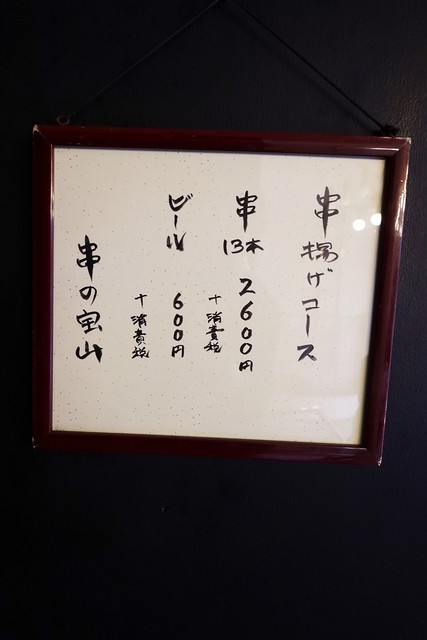 串揚げコース
串13本 2600円
+消費税
ビール 600円
+消費税
串の宝山